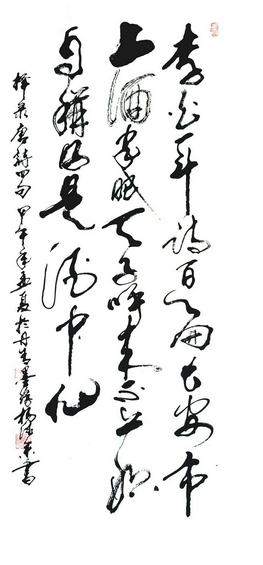 李白一斗诗百篇长安市
上酒家眠天子呼来不上船
自稱臣是酒中仙
择录唐诗四句甲午年孟夏於丹青墨缘杨书